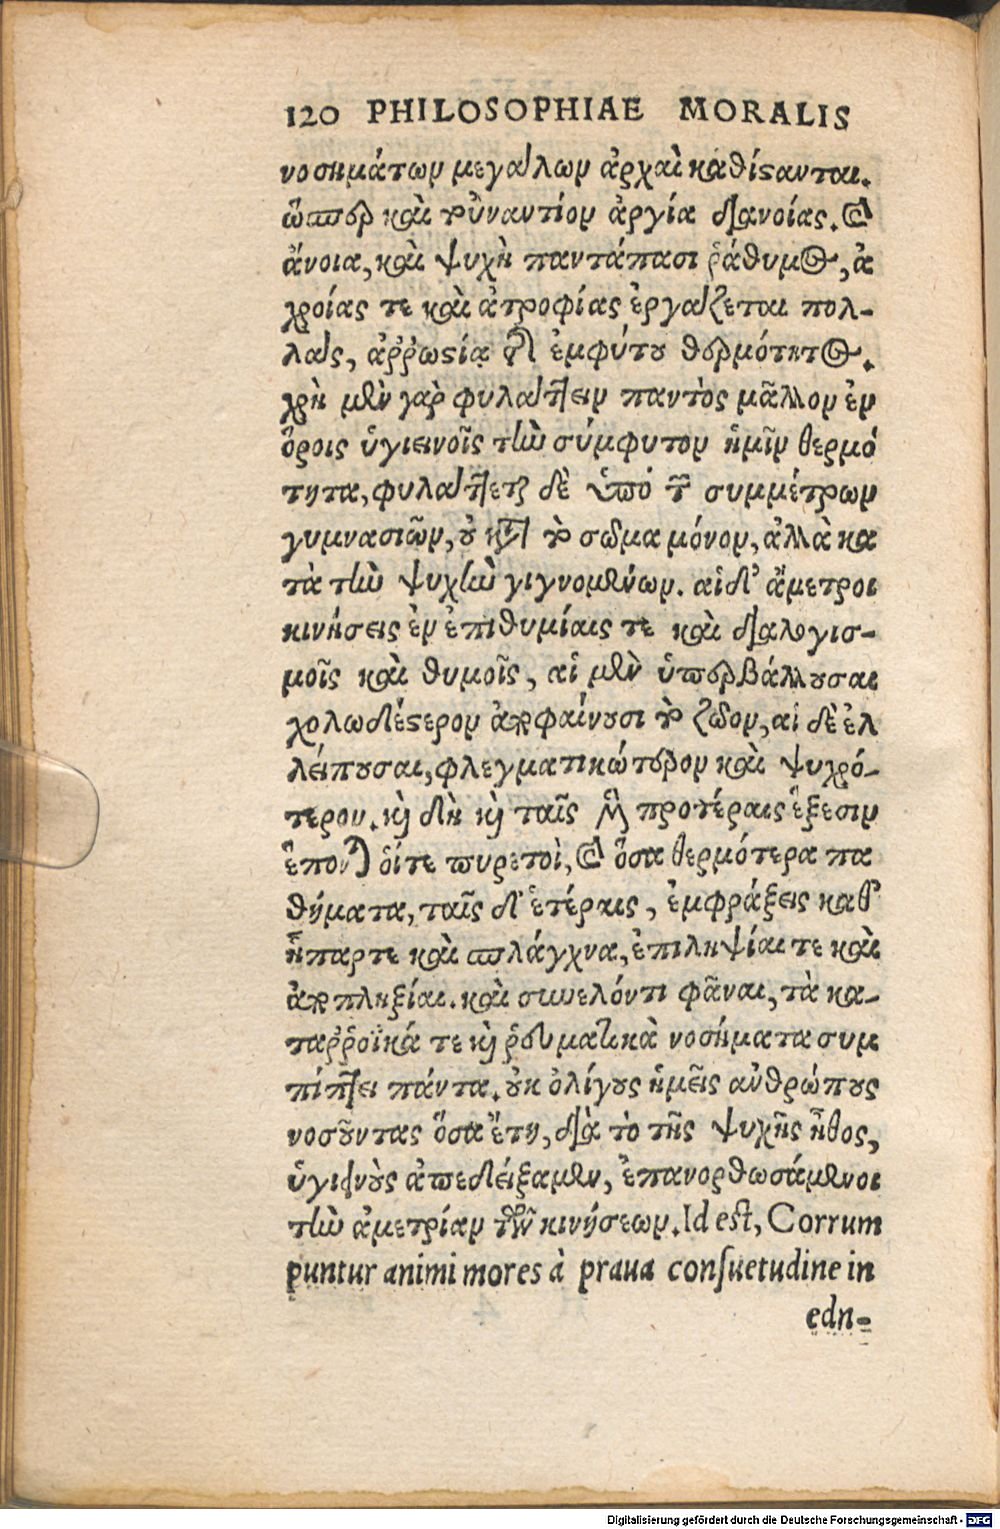 120 PHILOSOPHIAE MORALIS
νοσημάτων μεγάλων ἀρχαὶ καθίϛανται.
ὥσπερ καὶ τοὐναντίον ἀργία διανοίας. καὶ
ἄνοια, καὶ ψυχὴ παντάπασι ῥάθυμος, ἀ
χροίας τε καὶ ἀτροφίας ἐργάζεται πολ-
λαῖς, ἀῤῥωϛίᾳ τοῦ ἐμφύτου θερμότητος.
χρὴ μὲν γὰρ φυλάττειν παντὸς μᾶλλον ἐν
ὅροις ὑγιεινοῖς τὴν σύμφυτον ἡμῖν θερμό
τητα, φυλάττεται δὲ ὑπό τῶν συμμέτρων
γυμνασιῶν, οὐ κατὰ τὸ σῶμα μόνον, ἀλλὰ κα
τὰ τὴν ψυχὴν γιγνομένων. αἱ δ' ἄμετροι
κινήσεις ἐν ἐπιθυμίαις τε καὶ διαλογισ-
μοῖς καὶ θυμοῖς, αἱ μὲν ὑπερβάλλουσαι
χολωδέϛερον ἀποφαίνουσι τὸ ζῶον, αἱ δὲ ἐλ
λείπουσαι, φλεγματικώτερον καὶ ψυχρό-
τερον. καὶ δὴ καὶ ταῖς μὲν προτέραις ἕξεσιν
ἕπονται οἵτε πυρετοὶ, καὶ ὅσα θερμότερα πα
θήματα, ταῖς δ' ἑτέραις, ἐμφράξεις καθ'
ἧπαρτε καὶ σπλάγχνα, ἐπιληψίαι τε καὶ
ἀποπληξίαι. καὶ συνελόντι φᾶναι, τὰ κα-
ταῤῥοϊκά τε καὶ ῥευματικὰ νοσήματα συμ
πίπτει πάντα. οὐκ ὀλίγους ἡμεῖς ἀνθρώπους
νοσοῦντας ὅσα ἔτη, διὰ τὸ τῆς ψυχῆς ἦθος,
ὑγιεινοὺς ἀπεδείξαμεν, ἐπανορθωσάμενοι
τὴν ἀμετρίαν τῶν κινήσεων. Id est, Corrum
puntur animi mores à praua consuetudine in
edn-
Digitalisierung gefördert durch die Deutsche Forschungsgemeinschaft - DFG